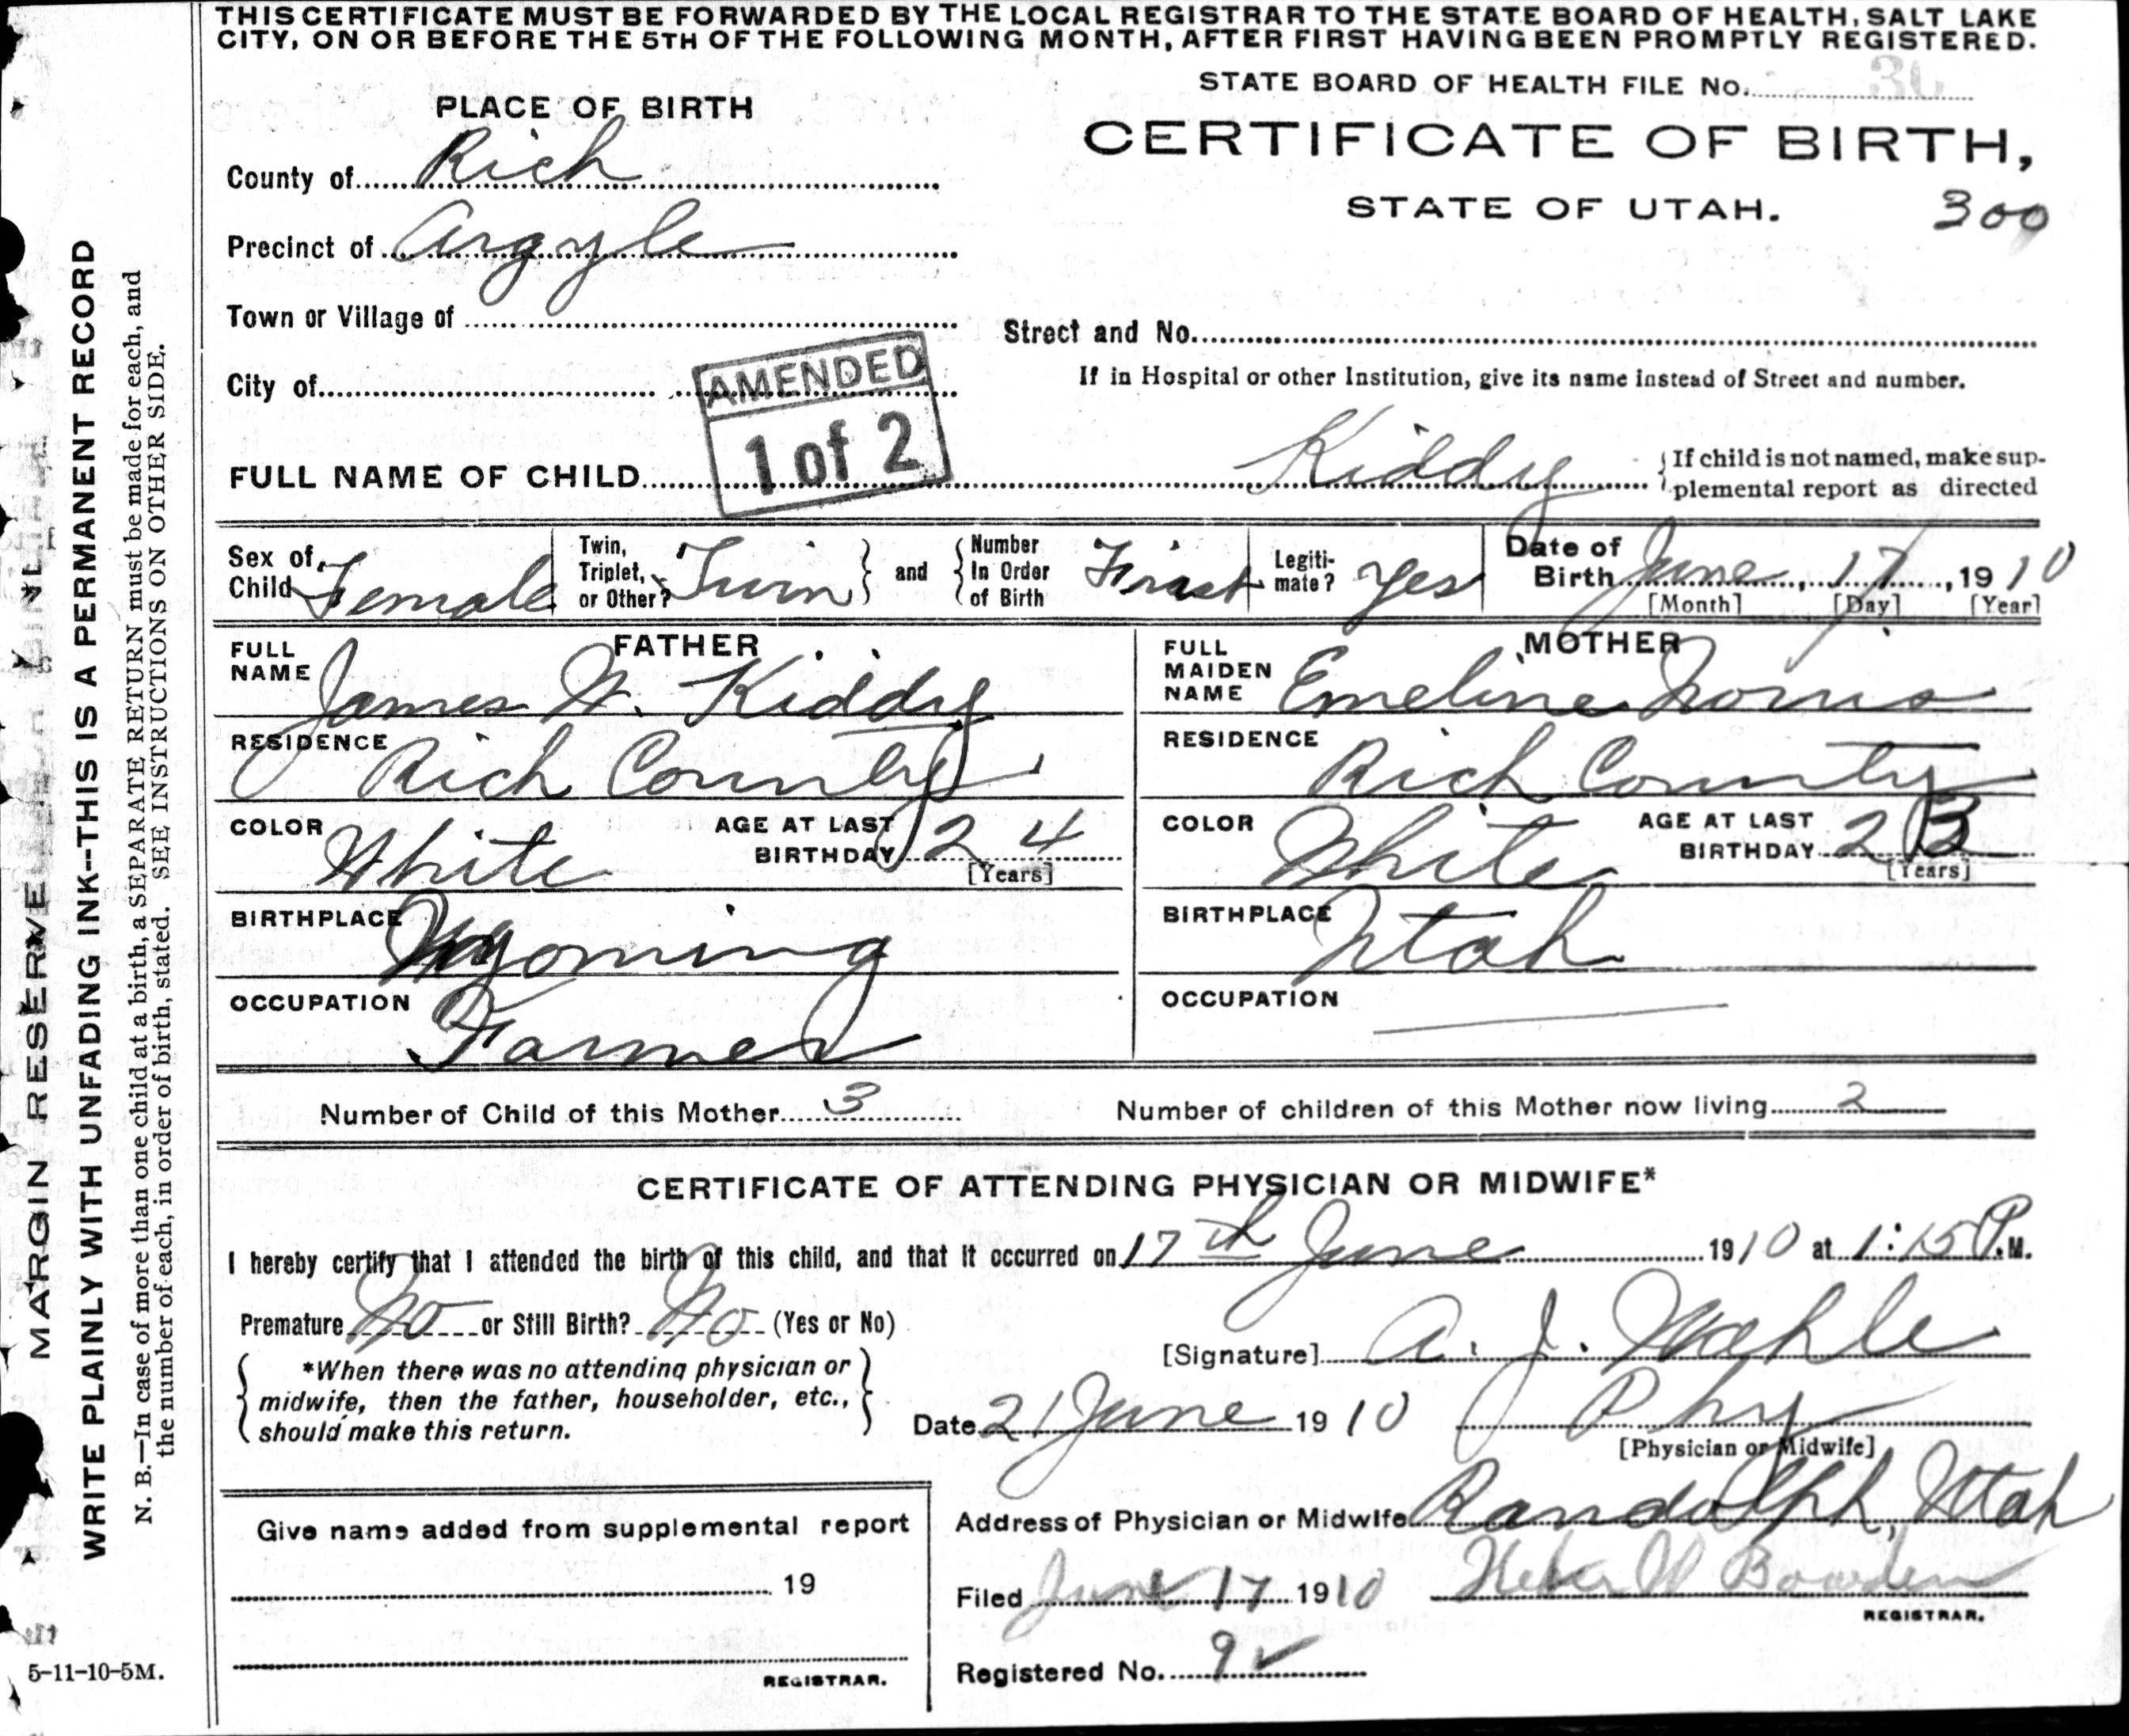 THIS CERTIFICATE MUST BE FORWARDED BY THE LOCAL REGISTRAR TO THE STATE BOARD OF HEALTH, SALT LAKE
CITY, ON OR BEFORE THE 5TH OF THE FOLLOWING MONTH, AFTER FIRST HAVING BEEN PROMPTLY REGISTERED.
STATE BOARD OF HEALTH FILE No.
PLACE OF BIRTH
CERTIFICATE OF BIRTH,
STATE OF UTAH.
300
County of Rich
Precinct of Argyle
Town or Village of
Street and No.
City of
If in Hospital or other Institution, give its name instead of Street and number.
AMENDED
1 of 2
FULL NAME OF CHILD Kiddy
If child is not named, make sup-
plemental report as directed
Sex of Child Female
Twin, Triplet, or Other? Twin
and
Number In Order of Birth First
Legiti-
mate? Yes
Date of Birth June, 17, 1910
[Month] [Day] [Year]
FATHER
FULL NAME James W. Kiddy
RESIDENCE Rich County
COLOR White AGE AT LAST BIRTHDAY 24
[Years]
BIRTHPLACE Wyoming
OCCUPATION Farmer
MOTHER
FULL MAIDEN NAME Emeline Norris
RESIDENCE Rich County
COLOR White AGE AT LAST BIRTHDAY 23
[Years]
BIRTHPLACE Utah
OCCUPATION
Number of Child of this Mother 3
Number of children of this Mother now living 2
CERTIFICATE OF ATTENDING PHYSICIAN OR MIDWIFE*
I hereby certify that I attended the birth of this child, and that it occurred on 17th June 1910 at 1:15 P.M.
Premature No or Still Birth? No (Yes or No)
*When there was no attending physician or
midwife, then the father, householder, etc.,
should make this return.
[Signature] A. J.
Date 21 June 1910 Phy
[Physician or Midwife]
Address of Physician or Midwife Randolph, Utah
Give name added from supplemental report
19
REGISTRAR.
Filed June 17 1910 Heber W Bowden
REGISTRAR.
Registered No. 9
MARGIN RESERVE
WRITE PLAINLY WITH UNFADING INK--THIS IS A PERMANENT RECORD
N. B.—In case of more than one child at a birth, a SEPARATE RETURN must be made for each, and
the number of each, in order of birth, stated. SEE INSTRUCTIONS ON OTHER SIDE.
5-11-10-5M.